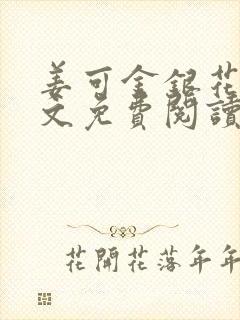 姜可金銀花
文免費閱讀
花開花落年年